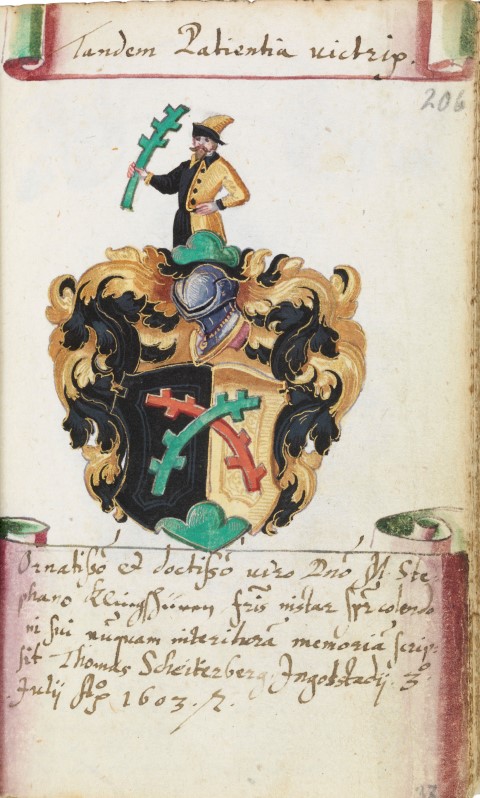 Tandem Patientia victrix.
206
Ornatissō et doctissō uiro Dnō M. Ste-
phano fr̄is instar spr̄ colendo
in sui nuquam interiturā memoriā scrip-
sit Thomas Scheiterberg. Ingolstadij. 3°
Julij 1603.
27